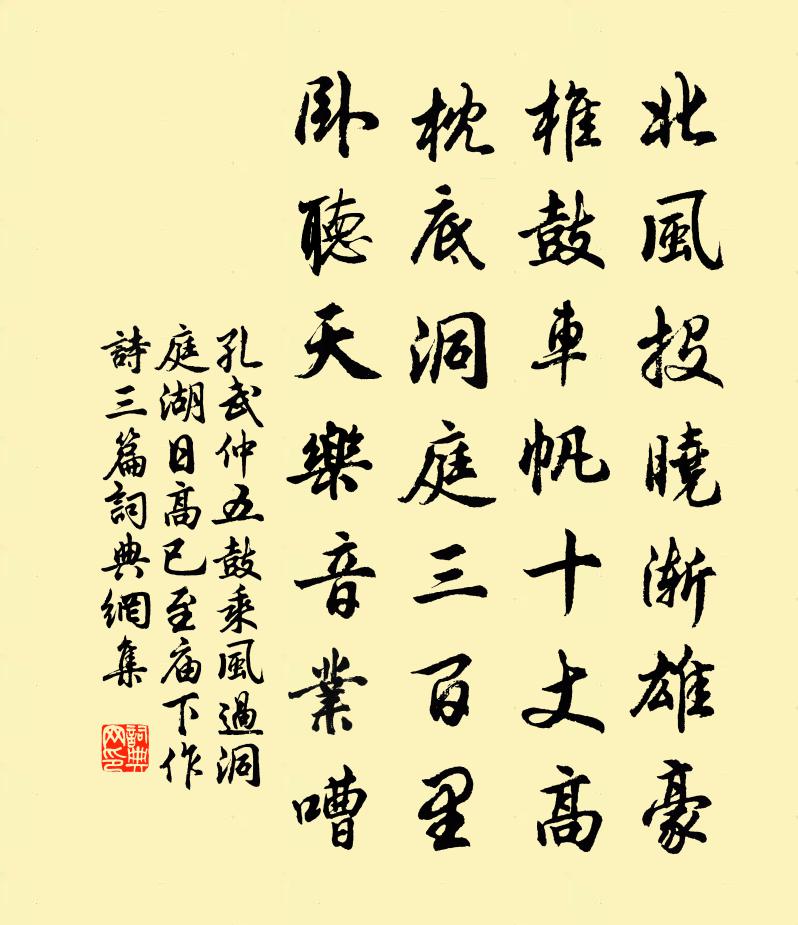 北風投曉漸雄豪
椎鼓車帆十丈高
枕底洞庭三百里
卧聽天樂音業嘈
孔武仲五鼓乘風過洞
庭湖日高已至庙下作
詩三篇詞典網集
詞典网印